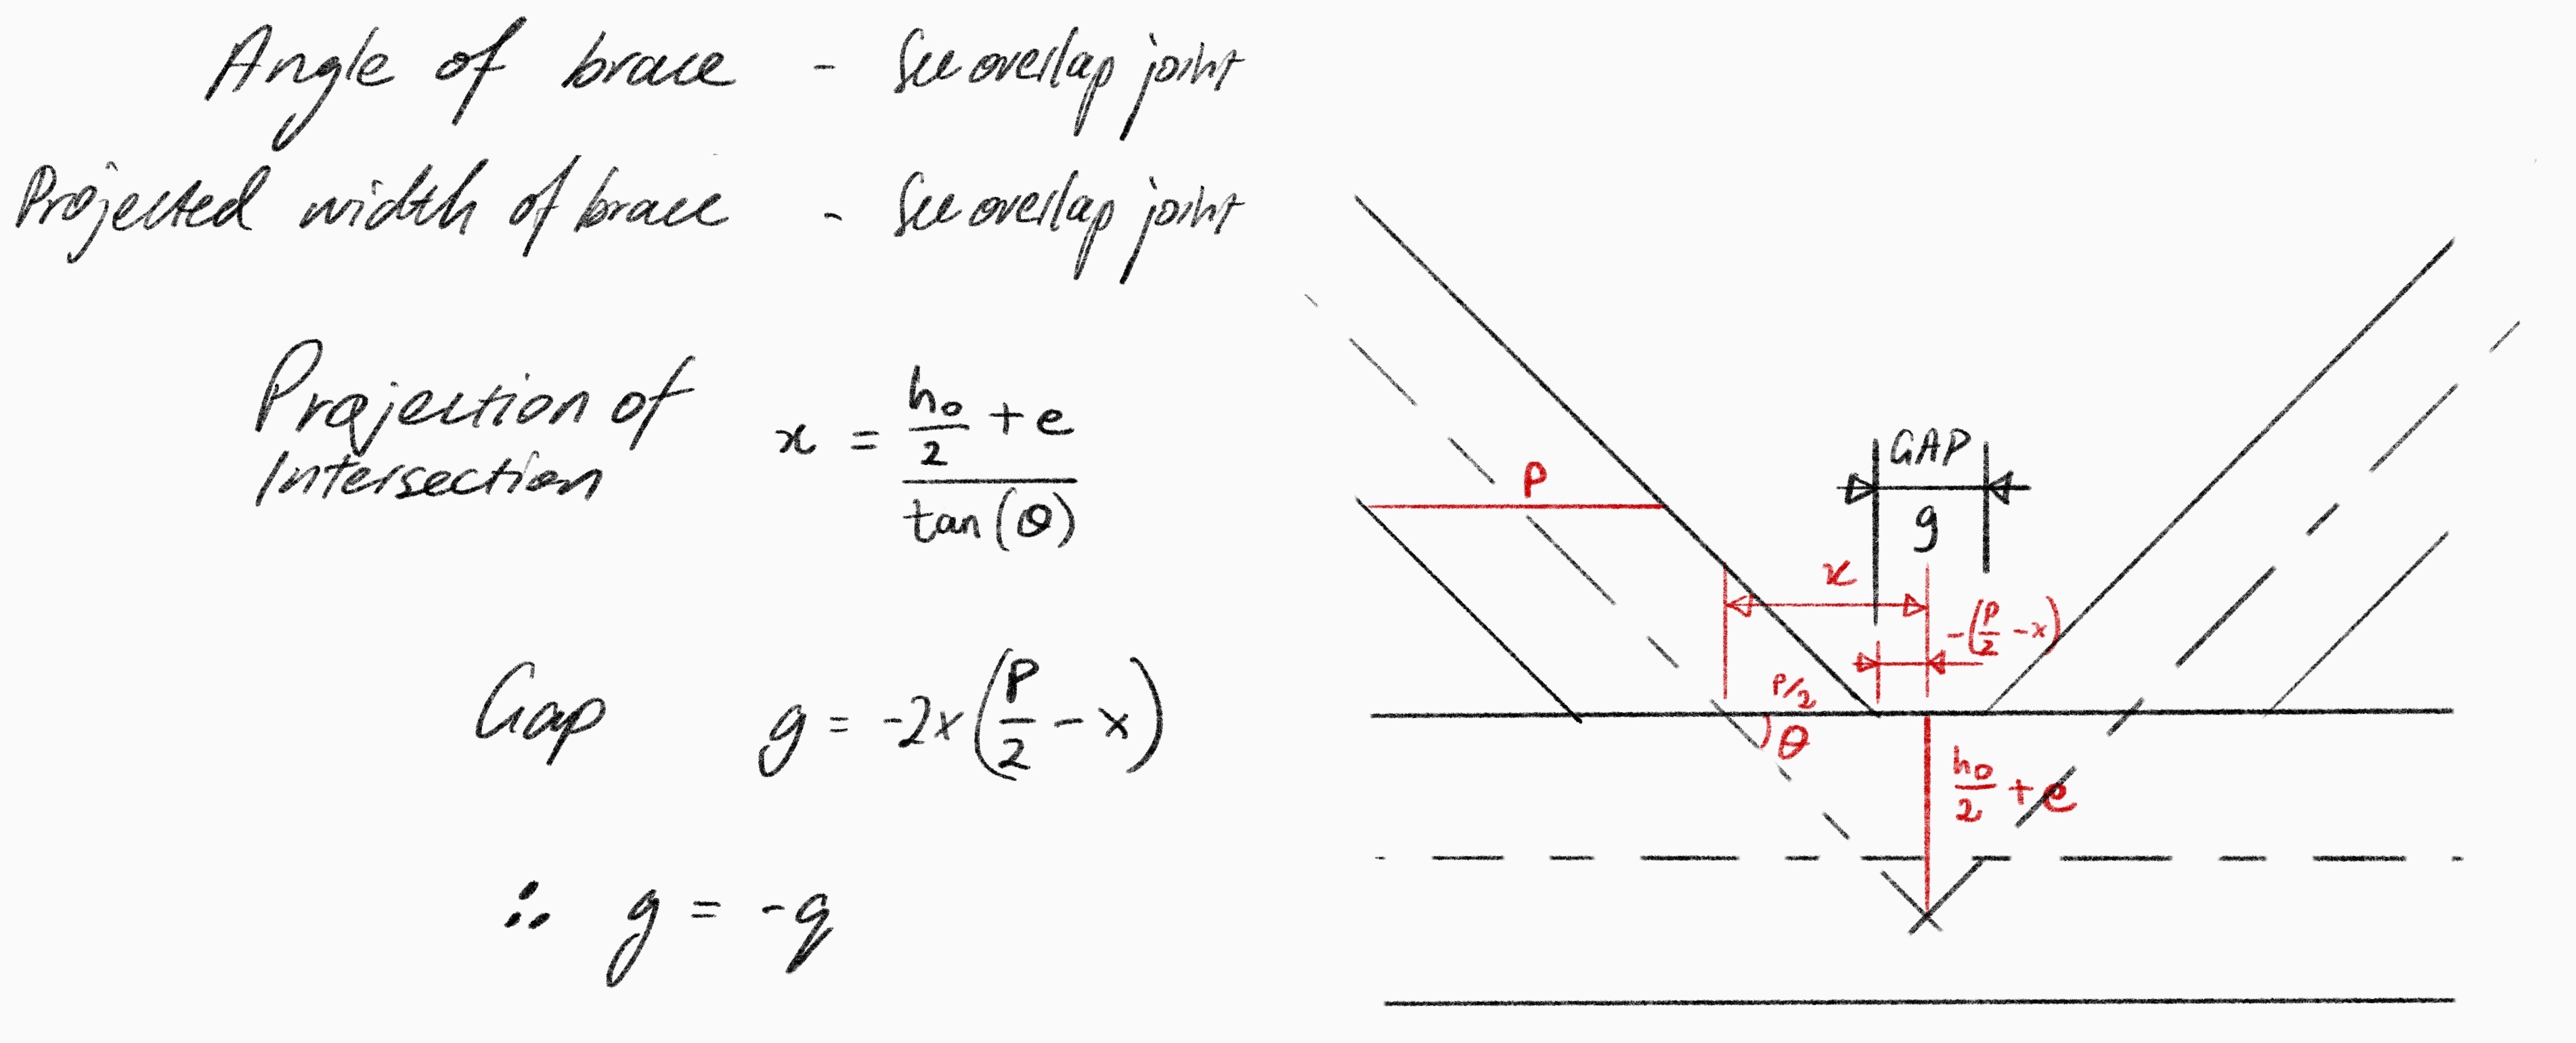 Angle of brace - See overlap joint
Projected width of brace - See overlap joint
Projection of
Intersection
x = (h₀/2 + e) / tan(θ)
Gap g = -2x(P/2 - x)
∴ g = -q
P
GAP
g
x
-(P/2 - x)
P/2
θ
h₀/2 + e